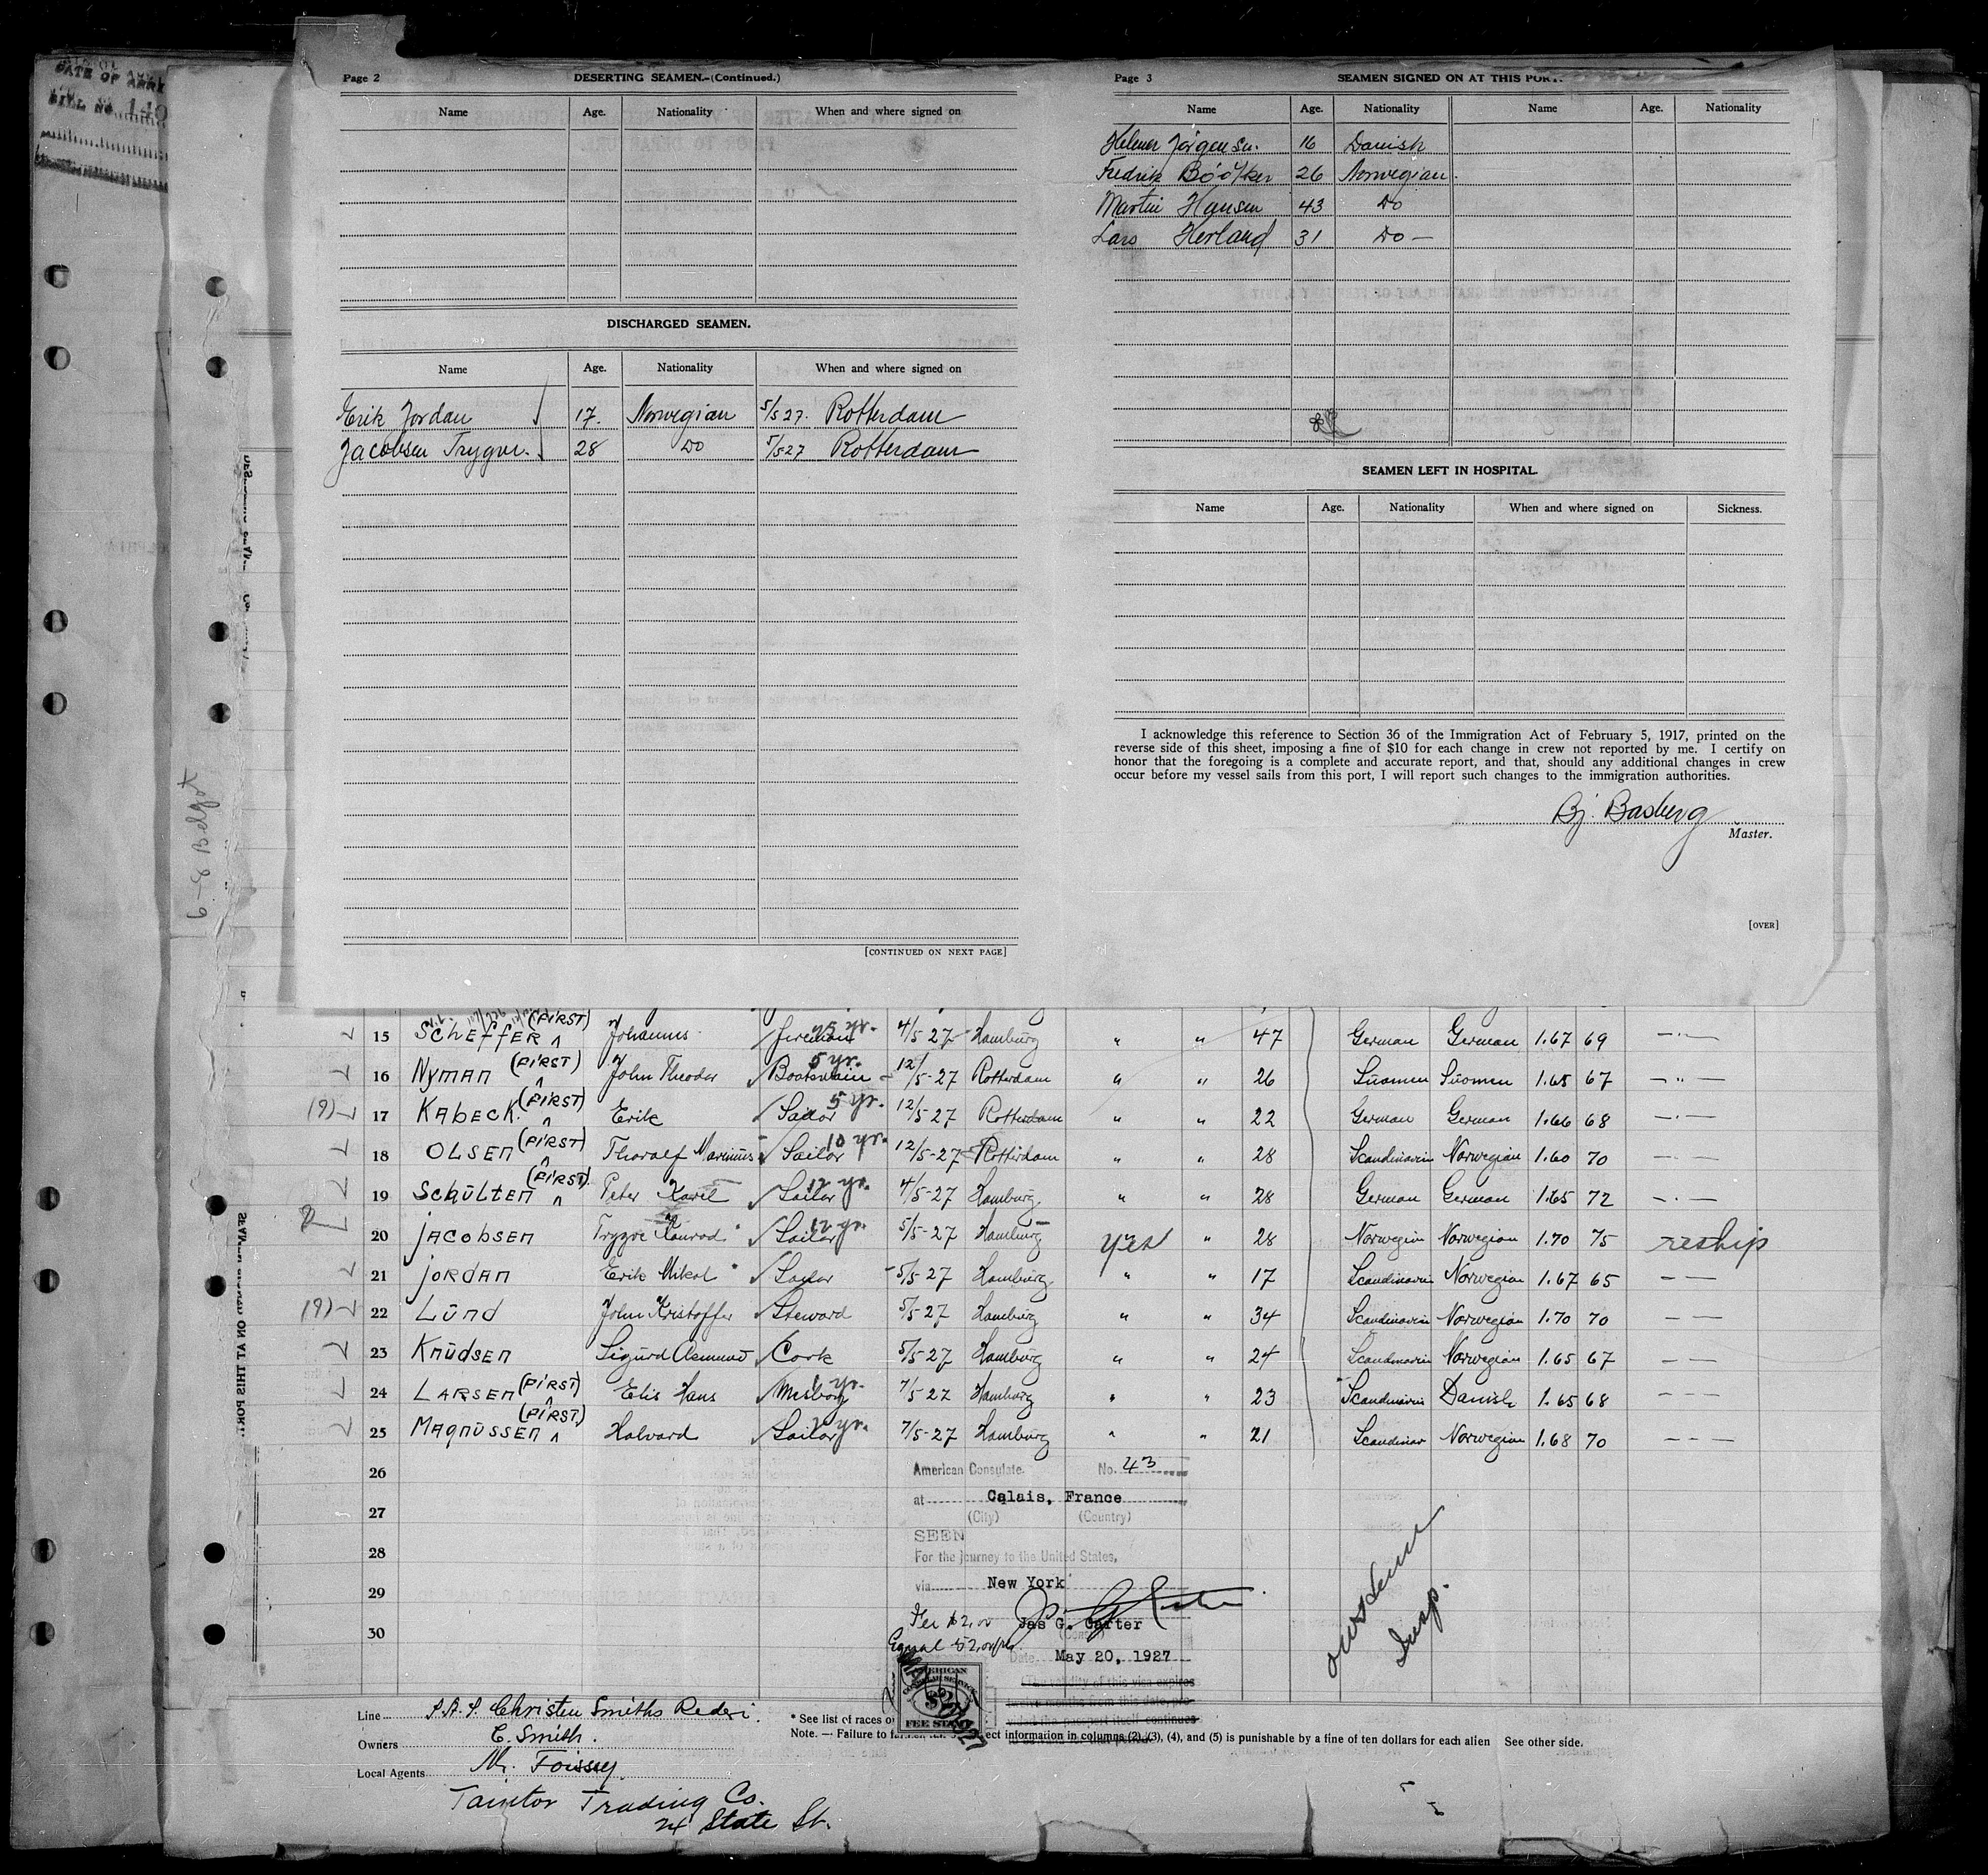 DATE OF ARRI
Page 2 DESERTING SEAMEN.—(Continued.)
Name Age. Nationality When and where signed on
DISCHARGED SEAMEN.
Name Age. Nationality When and where signed on
Erik Jordan 17. Norwegian 5/5 27. Rotterdam
Jacobsen Trygve. 28 Do 5/5 27 Rotterdam
[CONTINUED ON NEXT PAGE]
Page 3 SEAMEN SIGNED ON AT THIS PORT.
Name Age. Nationality Name Age. Nationality
Helmer Jörgensen. 16 Danish
Fredrik 26 Norwegian.
Martin Hansen 43 Do
Lars Herland 31 Do —
SEAMEN LEFT IN HOSPITAL.
Name Age. Nationality When and where signed on Sickness.
I acknowledge this reference to Section 36 of the Immigration Act of February 5, 1917, printed on the
reverse side of this sheet, imposing a fine of $10 for each change in crew not reported by me. I certify on
honor that the foregoing is a complete and accurate report, and that, should any additional changes in crew
occur before my vessel sails from this port, I will report such changes to the immigration authorities.
Bj. Basberg
Master.
[OVER]
15 SCHEFFER (FIRST) Johannes Fireman 25 yr. 4/5 27 Hamburg " " 47 German German 1.67 69 — " —
16 NYMAN (FIRST) John Theodor Boatswain 5 yr. 12/5-27 Rotterdam " " 26 Suomen Suomen 1.65 67 — " —
17 KABECK. (FIRST) Erik Sailor 5 yr. 12/5-27 Rotterdam " " 22 German German 1.66 68 — " —
18 OLSEN (FIRST) Thoralf Marinius Sailor 10 yr. 12/5-27 Rotterdam " " 28 Scandinavin Norwegian 1.60 70 — " —
19 SCHÜLTEN (FIRST) Peter Karel Sailor 12 yr. 4/5-27 Hamburg " " 28 German German 1.65 72 — " —
20 JACOBSEN Trygve Konrad Sailor 12 yr. 5/5-27 Hamburg yes " 28 Norwegian Norwegian 1.70 75 reship
21 JORDAN Erik Mikal Sailor 5/5-27 Hamburg " " 17 Scandinavin Norwegian 1.67 65 — —
22 LÜND John Kristoffer Steward 5/5-27 Hamburg " " 34 Scandinavin Norwegian 1.70 70 — —
23 KNÜDSEN Sigurd Asmund Cook 5/5-27 Hamburg " " 24 Scandinavin Norwegian 1.65 67 — —
24 LARSEN (FIRST) Elis Hans Messboy 1 yr. 7/5-27 Hamburg " " 23 Scandinavin Danish 1.65 68 — — —
25 MAGNÜSSEN (FIRST) Halvard Sailor yr. 7/5-27 Hamburg " " 21 Scandinav Norwegian 1.68 70 — — —
26
27
28
29
30
American Consulate. No. 43
at Calais, France
(City) (Country)
SEEN
For the journey to the United States,
via New York
Fee $2.00
Jas G. Carter
Equal
Date May 20, 1927
The validity of this visa expires
twelve months from this date, pro-
vided the passport itself continues
AMERICAN
$2
FEE STAMP
Insp.
Line S.A.S. Christen Smiths Rederi.
Owners C. Smith.
Local Agents Mr. Foissey.
Taintor Trading Co.
24 State St.
* See list of races o
Note. — Failure to information in columns (2), (3), (4), and (5) is punishable by a fine of ten dollars for each alien See other side.